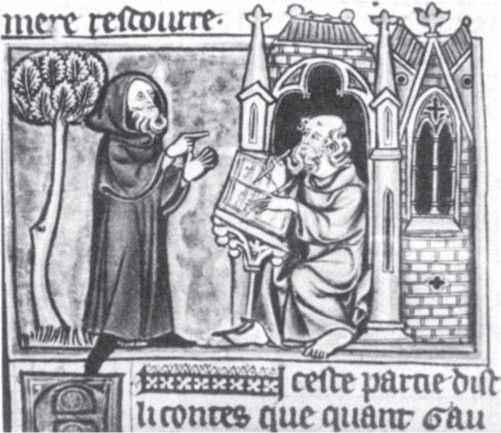 mere rescourre.
A ceste partie dist
li contes que quant Gau